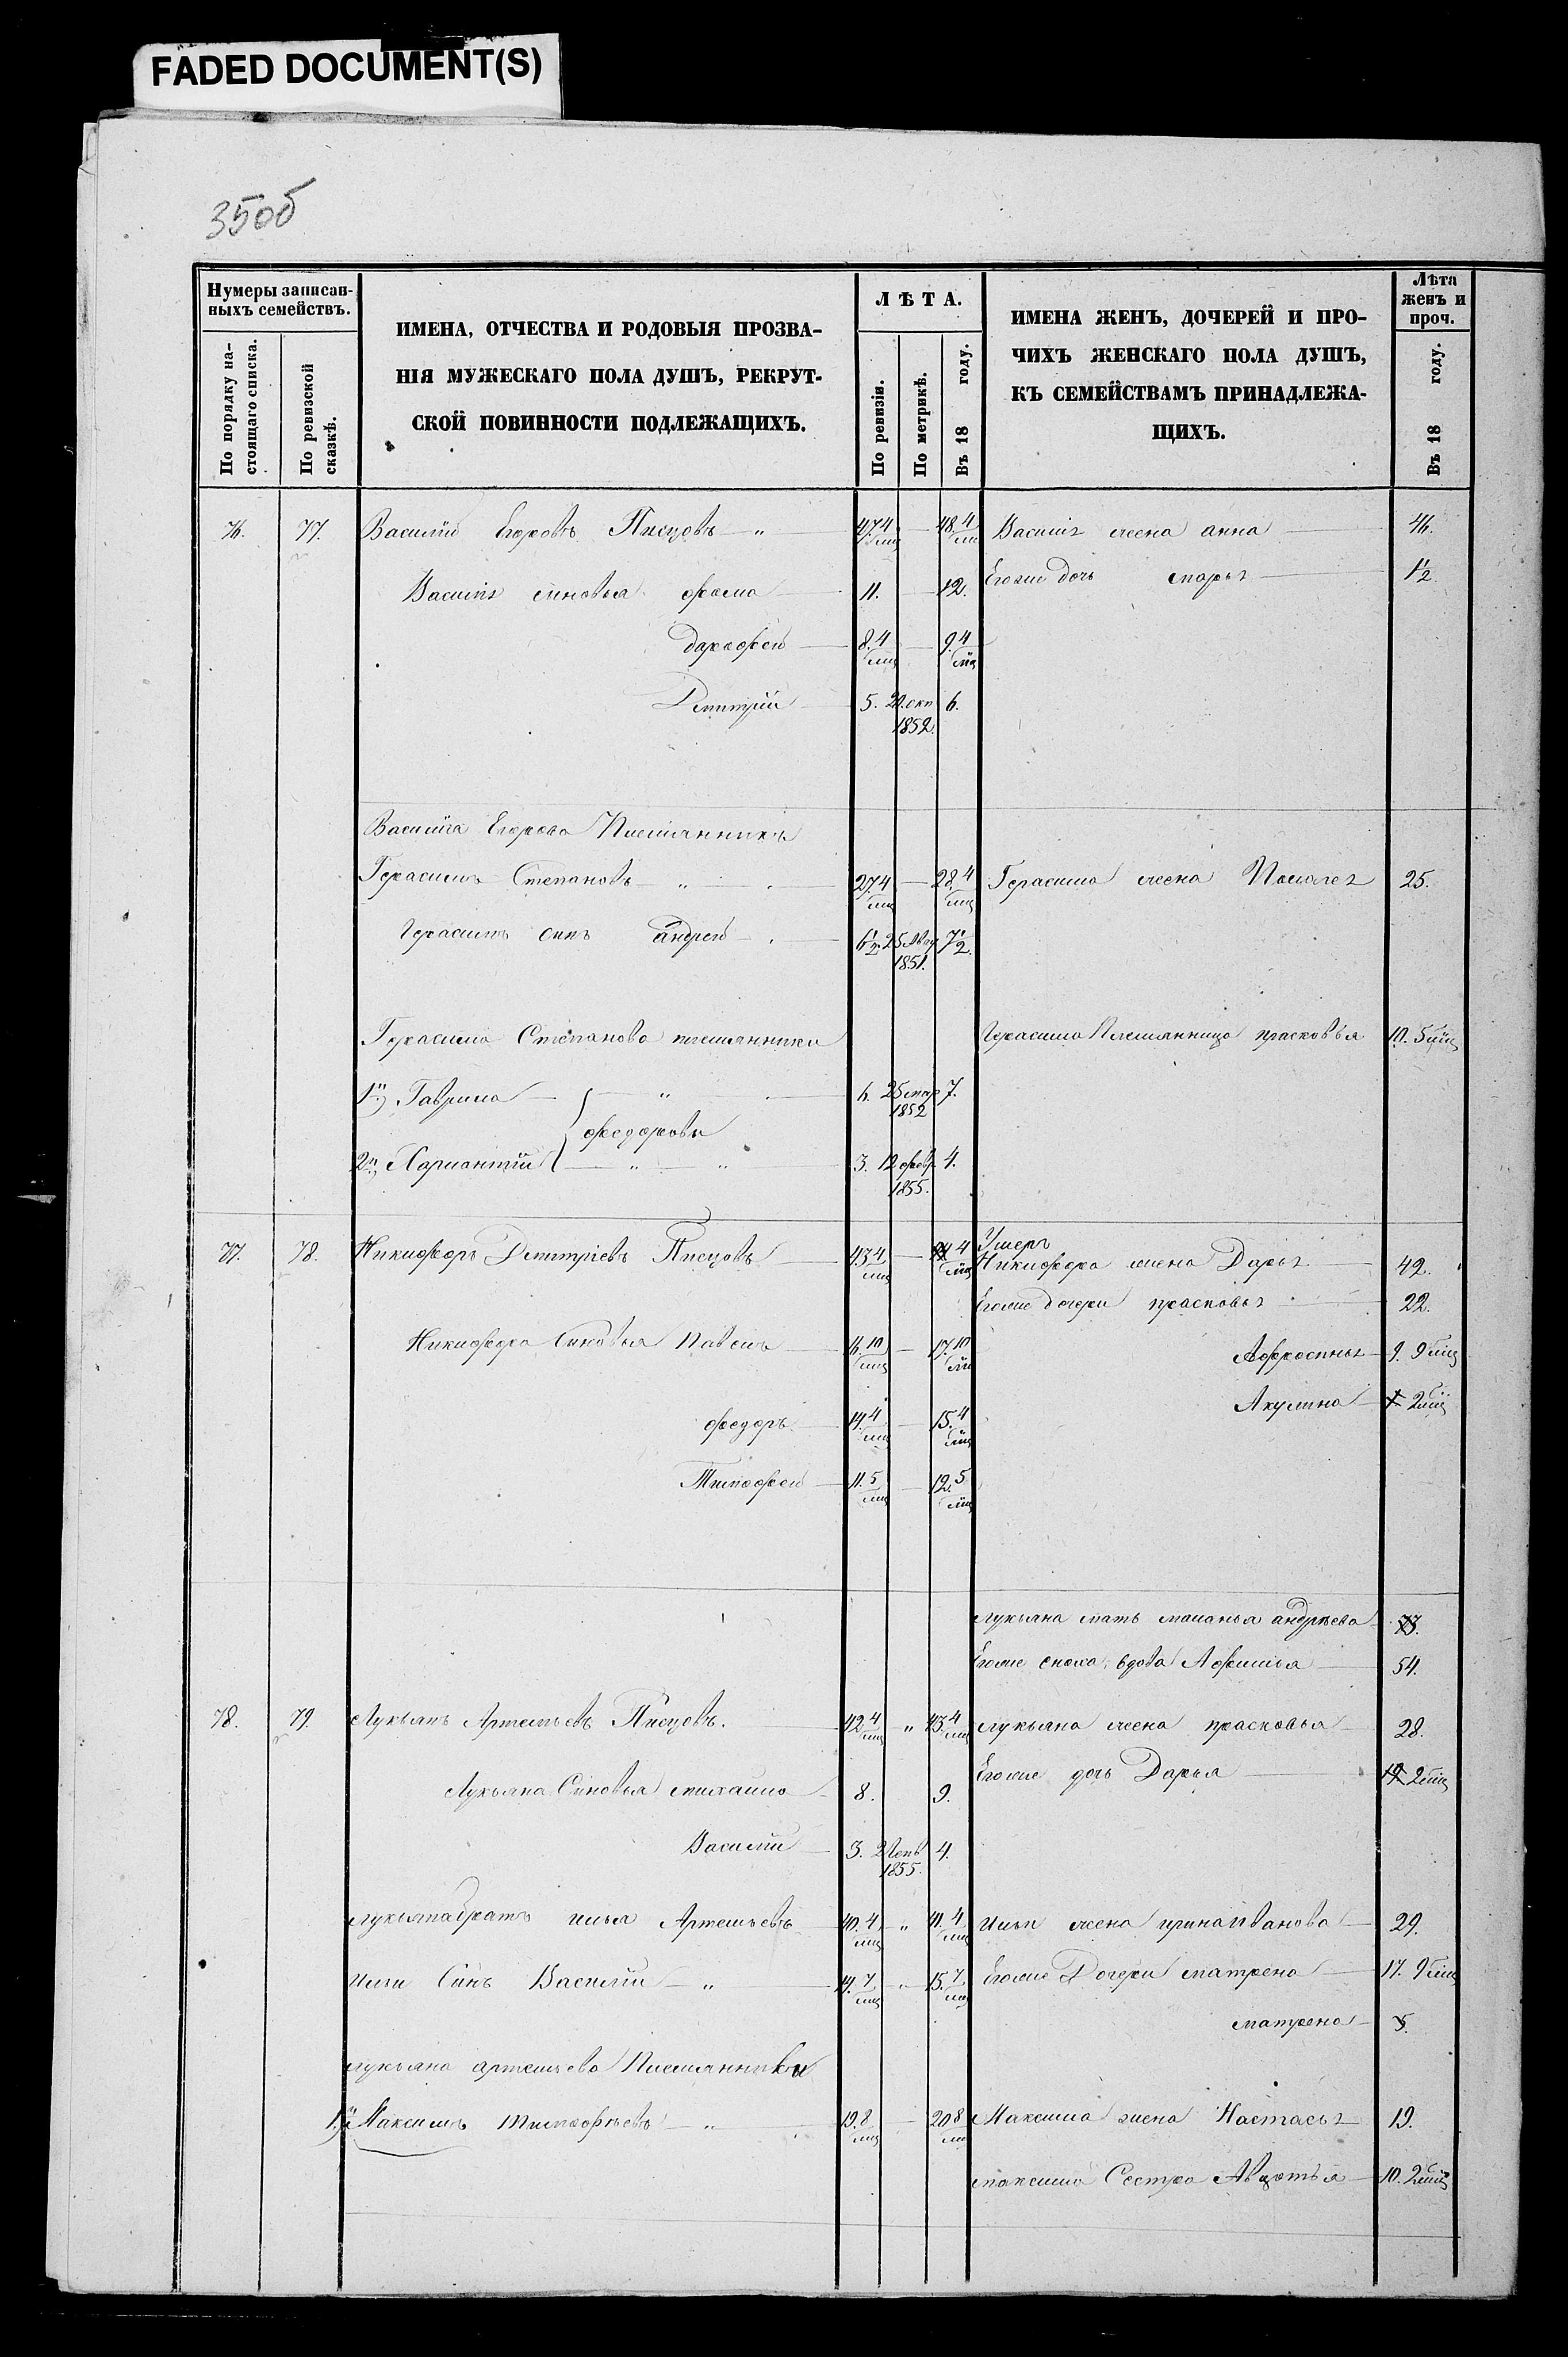 FADED DOCUMENT(S)
350б
Нумеры записан-
ныхъ семействъ.
По порядку на-
стоящаго списка.
По ревизской
сказкѣ.
ИМЕНА, ОТЧЕСТВА И РОДОВЫЯ ПРОЗВА-
НІЯ МУЖЕСКАГО ПОЛА ДУШЪ, РЕКРУТ-
СКОЙ ПОВИННОСТИ ПОДЛЕЖАЩИХЪ.
ЛѢТА.
По ревизіи.
По метрикѣ.
Въ 18 году.
ИМЕНА ЖЕНЪ, ДОЧЕРЕЙ И ПРО-
ЧИХЪ ЖЕНСКАГО ПОЛА ДУШЪ,
КЪ СЕМЕЙСТВАМЪ ПРИНАДЛЕЖА-
ЩИХЪ.
Лѣта
женъ и
проч.
Въ 18 году.
76. 77. Василій Егоровъ Писцовъ — " 47. 4 мц — 48. 4 мц Василія жена анна 46.
Василія сыновья фома 11. 12. Егоже дочь марья 1 1/2
дорофей 8. 4 мц — 9. 4 мц
Дмитрій 5. окт 1852. 6.
Василія Егорова Племянникъ
Герасимъ Степановъ — " 27. 4 мц — 28. 4 мц Герасима жена 25.
Герасима сынъ андрей 6 1/2 25 1851. 7 1/2.
Герасима Степанова племянники Герасима Племянница прасковья 10. 5 мц
1й) Гаврила — " 6. 25 мар 1852 7.
федоровы
2й) — " — " 3. 12 февр 1855. 4.
77 78. Никифоръ Дмитріевъ Писцовъ 43. 4 мц — 44 4 мц Умеръ
Никифора жена Дарья 42.
Егоже дочери прасковья 22.
Никифора Сыновья Павелъ 16. 10 мц — 17. 10 мц Афросинья 9. 9 мц
федоръ 14. 4 мц — 15. 4 мц Акулина 2 мц
Тимофей 11. 5 мц — 12. 5 мц
лукьяна мать маланья андрѣева 73.
Егоже сноха, вдова Афимья 54.
78. 79. Лукьянъ Артемьевъ Писцовъ. 42 4 мц " 43. 4 мц лукьяна жена прасковья 28.
Лукьяна Сыновья михайло 8. 9. Егоже дочь Дарья 2 мц
Василій 3. 1855. 4.
лукьяна братъ илья Артемьевъ 40. 4 мц " 41. 4 мц ильи жена ирина иванова 29.
ильи Сынъ Василій — " 14. 7 мц " 15. 7 мц Егоже Дочери матрена 17. 9 мц
матрена 5.
лукьяна артемьева Племянники
1й) Максимъ тимофѣевъ — " 19. 8 мц — 20 8 мц Максима жена Настасья 19.
максима Сестра Авдотья 10. 2 мц